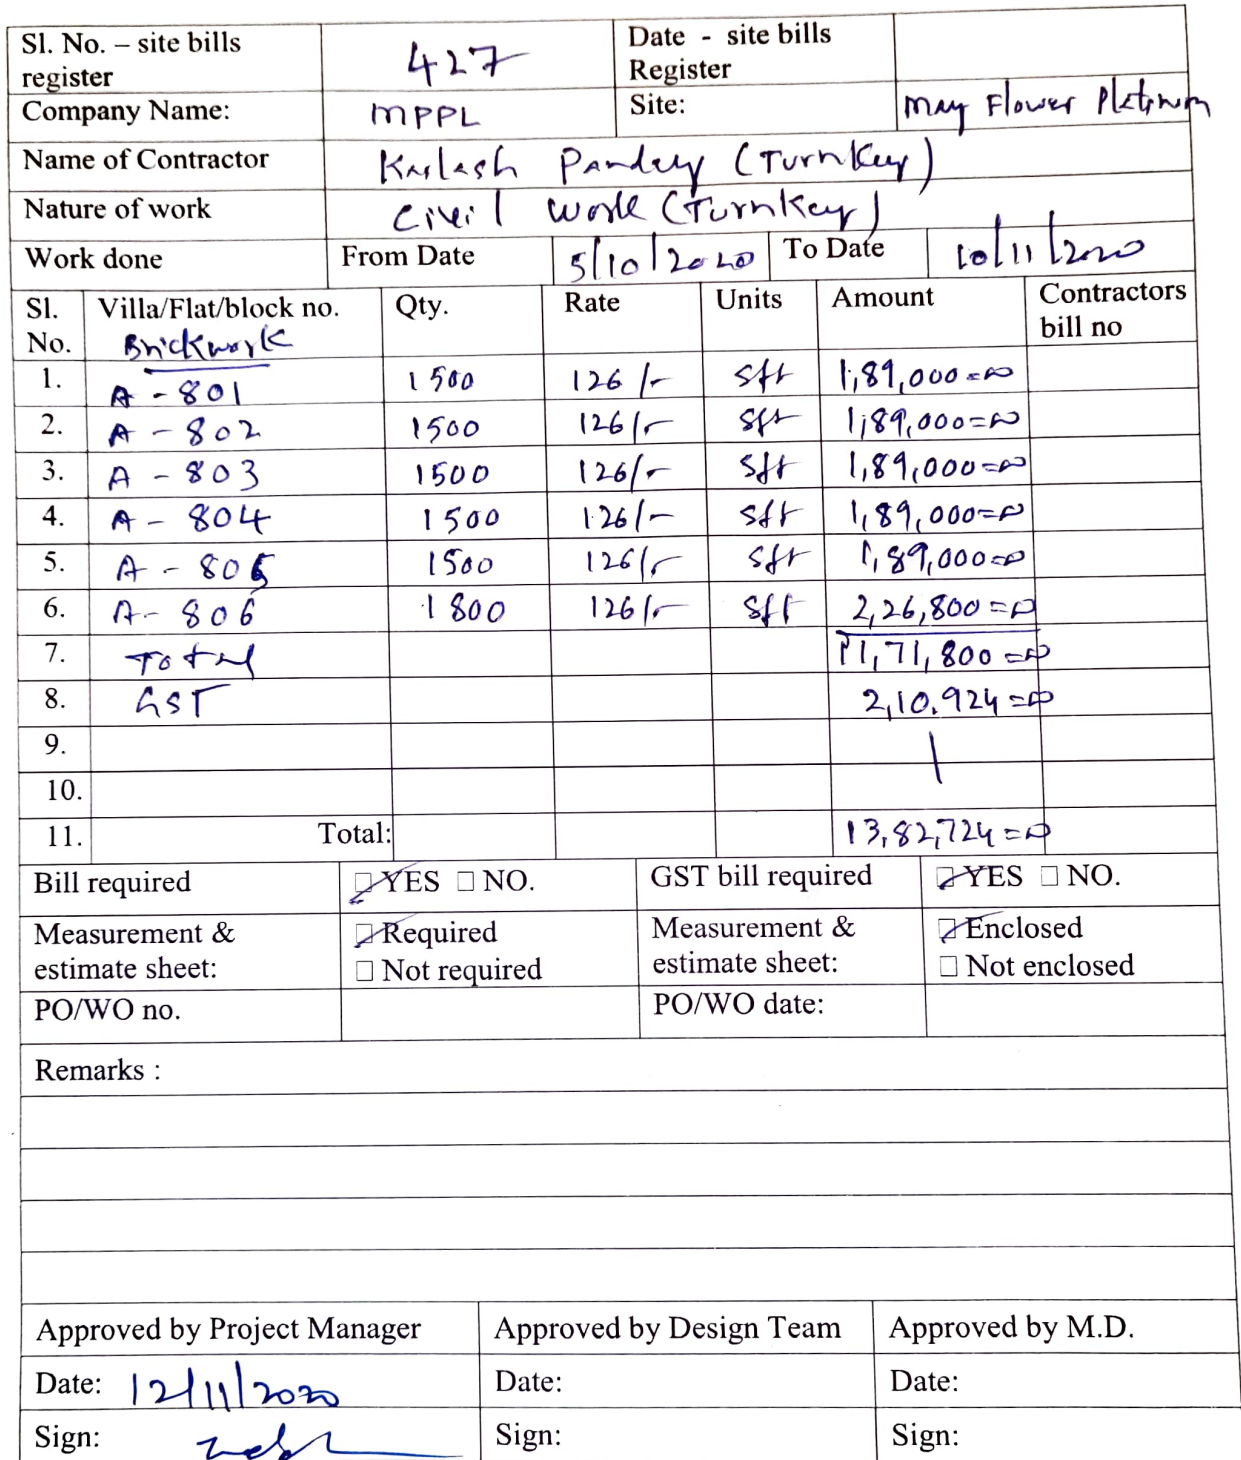 Sl. No. – site bills register 427 Date - site bills Register
Company Name: MPPL Site: May Flower Platinum
Name of Contractor Kailash Pandey (Turnkey)
Nature of work Civil work (Turnkey)
Work done From Date 5/10/2020 To Date 10/11/2020
Sl. No. Villa/Flat/block no. Qty. Rate Units Amount Contractors bill no
Brickwork
1. A - 801 1500 126/- sft 1,89,000=00
2. A - 802 1500 126/- sft 1,89,000=00
3. A - 803 1500 126/- sft 1,89,000=00
4. A - 804 1500 126/- sft 1,89,000=00
5. A - 805 1500 126/- sft 1,89,000=00
6. A - 806 1800 126/- sft 2,26,800=00
7. Total 11,71,800=00
8. GST 2,10,924=00
9.
10.
11. Total: 13,82,724=00
Bill required YES NO. GST bill required YES NO.
Measurement & estimate sheet: Required Not required Measurement & estimate sheet: Enclosed Not enclosed
PO/WO no. PO/WO date:
Remarks :
Approved by Project Manager Approved by Design Team Approved by M.D.
Date: 12/11/2020 Date: Date:
Sign: Sign: Sign: